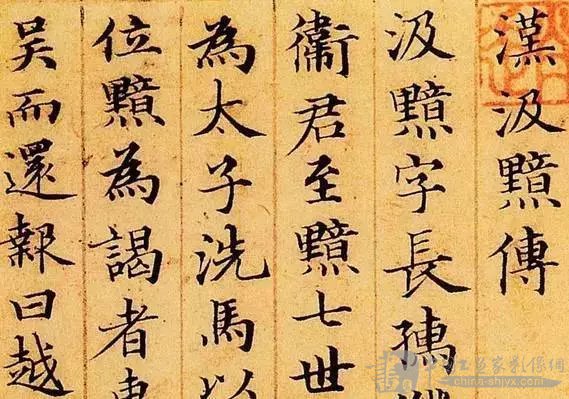 漢汲黯傳
汲黯字長孺
衛君至黯七世
為太子洗馬以
位黯為謁者東
吳而還報曰越
china-shjyx.com